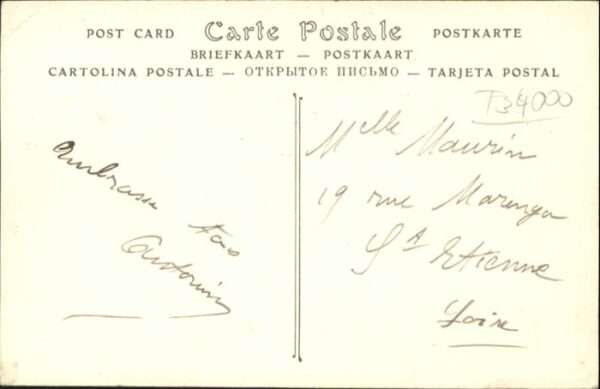 POST CARD Carte Postale POSTKARTE
BRIEFKAART — POSTKAART
CARTOLINA POSTALE — ОТКРЫТОЕ ПИСЬМО — TARJETA POSTAL
T34000
Mlle Maurin
19 rue Marengo
St Etienne
Loire
Embrasse tous
Antonin